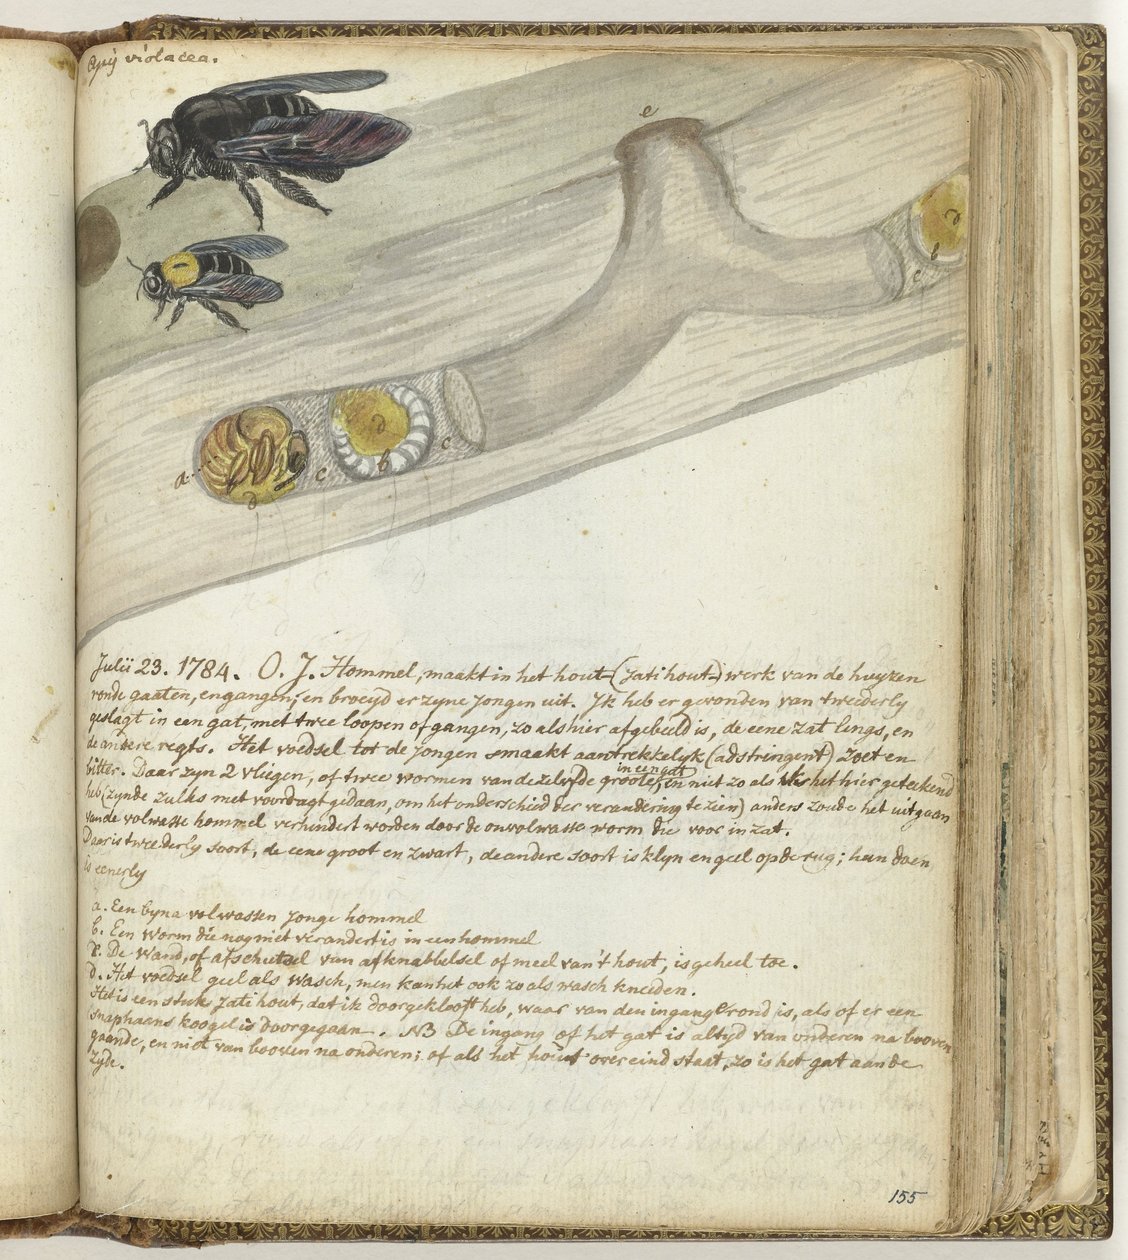 Apis violacea.
e
d
b
c
a
d
b
c
c
b
d
Julii 23. 1784. O. J. Hommel, maakt in het hout (Jati hout) werk van de huyzen
ronde gaaten, en gangen, en broeyd er zyne jongen uit. Ik heb er gevonden van tweederly
geslagt in een gat, met twee loopen of gangen, zo als hier afgebeeld is, de eene zat lings, en
de andere regts. Het voedsel tot de jongen smaakt aantrekkelyk (adstringent) zoet en
bitter. Daar zyn 2 vliegen, of twee wormen van dezelvde groote, in een gat en niet zo als het hier geteekend
heb (zynde zulks met voordagt gedaan, om het onderscheid der verandering te zien) anders zoude het uitgaan
van de volwasse hommel verhindert worden door de onvolwasse worm die voor in zat.
Daar is tweederly soort, de eene groot en zwart, de andere soort is klyn en geel op de rug; hun doen
is eenerly
a. Een byna volwassen jonge hommel
b. Een worm die nog niet verandert is in een hommel
c. De wand, of afschutsel van afknabbelsel of meel van 't hout, is geheel toe.
d. Het voedsel geel als wasch, men kan het ook zo als wasch kneiden.
Het is een stuk Jati hout, dat ik doorgeklooft heb, waar van den ingang e rond is, als of er een
snaphaans koogel is doorgegaan. NB De ingang of het gat is altyd van onderen na booven
gaande, en niet van booven na onderen; of als het hout overeind staat, zo is het gat aan de
zyde.
155